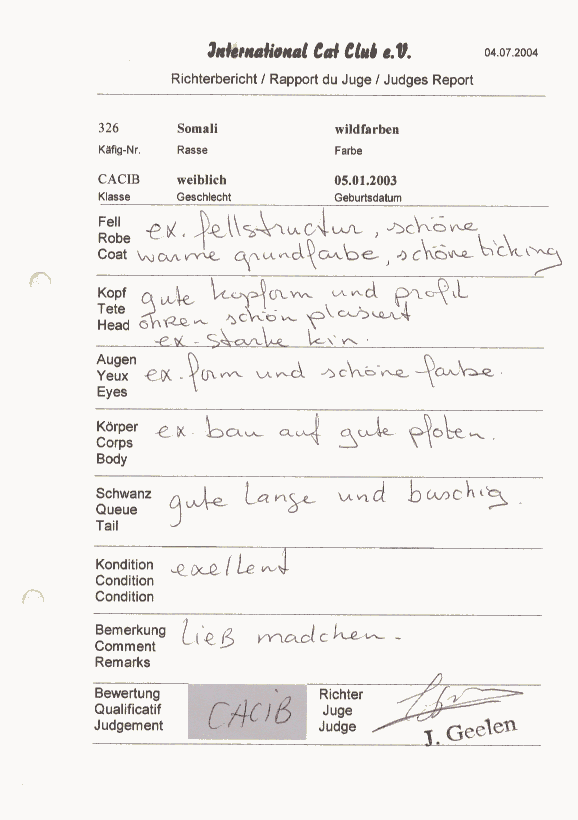 International Cat Club e.V.
04.07.2004
Richterbericht / Rapport du Juge / Judges Report
326 Somali wildfarben
Käfig-Nr. Rasse Farbe
CACIB weiblich 05.01.2003
Klasse Geschlecht Geburtsdatum
Fell ex. fellstructur, schöne
Robe
Coat warme grundfarbe, schöne ticking
Kopf gute kopform und profil
Tete
Head öhren schön plasiert
ex. starke kin.
Augen
Yeux ex. form und schöne farbe.
Eyes
Körper ex. bau auf gute pfoten.
Corps
Body
Schwanz gute Lange und buschig.
Queue
Tail
Kondition exellent
Condition
Condition
Bemerkung Ließ madchen.
Comment
Remarks
Bewertung Richter
Qualificatif CACiB Juge
Judgement Judge
J. Geelen